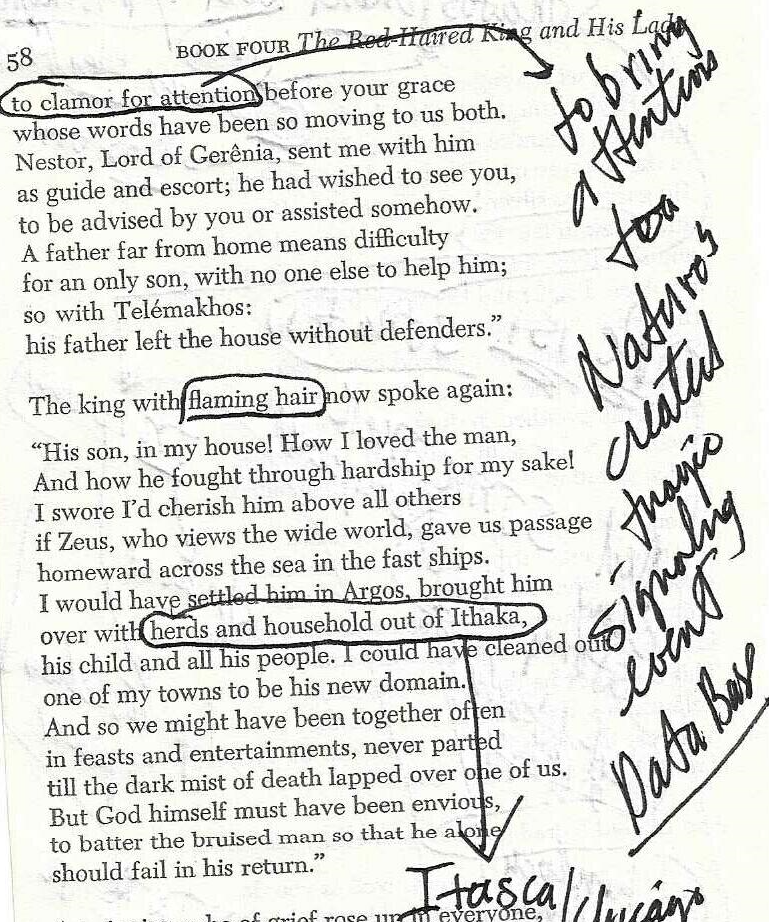 58
BOOK FOUR The Red-Haired King and His Lady
to clamor for attention before your grace
whose words have been so moving to us both.
Nestor, Lord of Gerênia, sent me with him
as guide and escort; he had wished to see you,
to be advised by you or assisted somehow.
A father far from home means difficulty
for an only son, with no one else to help him;
so with Telémakhos:
his father left the house without defenders.”
The king with flaming hair now spoke again:
“His son, in my house! How I loved the man,
And how he fought through hardship for my sake!
I swore I’d cherish him above all others
if Zeus, who views the wide world, gave us passage
homeward across the sea in the fast ships.
I would have settled him in Argos, brought him
over with herds and household out of Ithaka,
his child and all his people. I could have cleaned out
one of my towns to be his new domain.
And so we might have been together often
in feasts and entertainments, never parted
till the dark mist of death lapped over one of us.
But God himself must have been envious,
to batter the bruised man so that he alone
should fail in his return.”
of grief rose up in everyone,
to bring
attention
too
Nature's
created
magic
signaling
event
Data Base
Itasca/Chicago